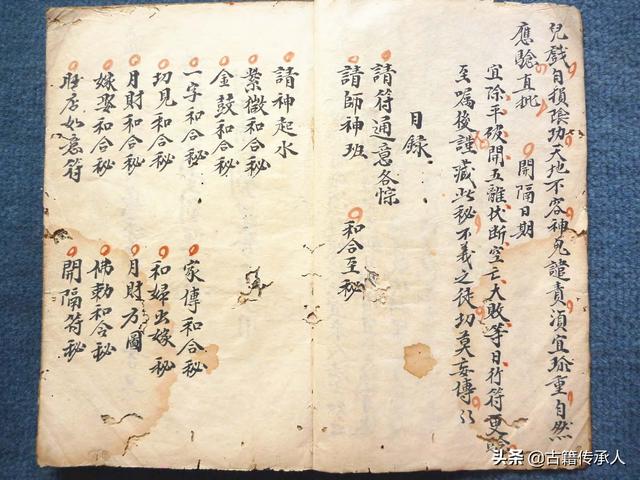 兒戲自損陰功天地不容神鬼譴責須宜珎重自然
應驗直批
開隔日期
宜除平破開五離伐断空亡大敗等日行符更
至嘱後謹藏此秘不義之徒切莫妄傳
目錄
請符通意各悰
和合至秘
請師神班
請神起水
紫微和合秘
金鼓和合秘
一字和合秘
家傳和合秘
切見和合秘
和婦出嫁秘
月財和合秘
月財方圖
嫁娶和合秘
佛勅和合秘
旺店如意符
開隔符秘
头条 @古籍传承人